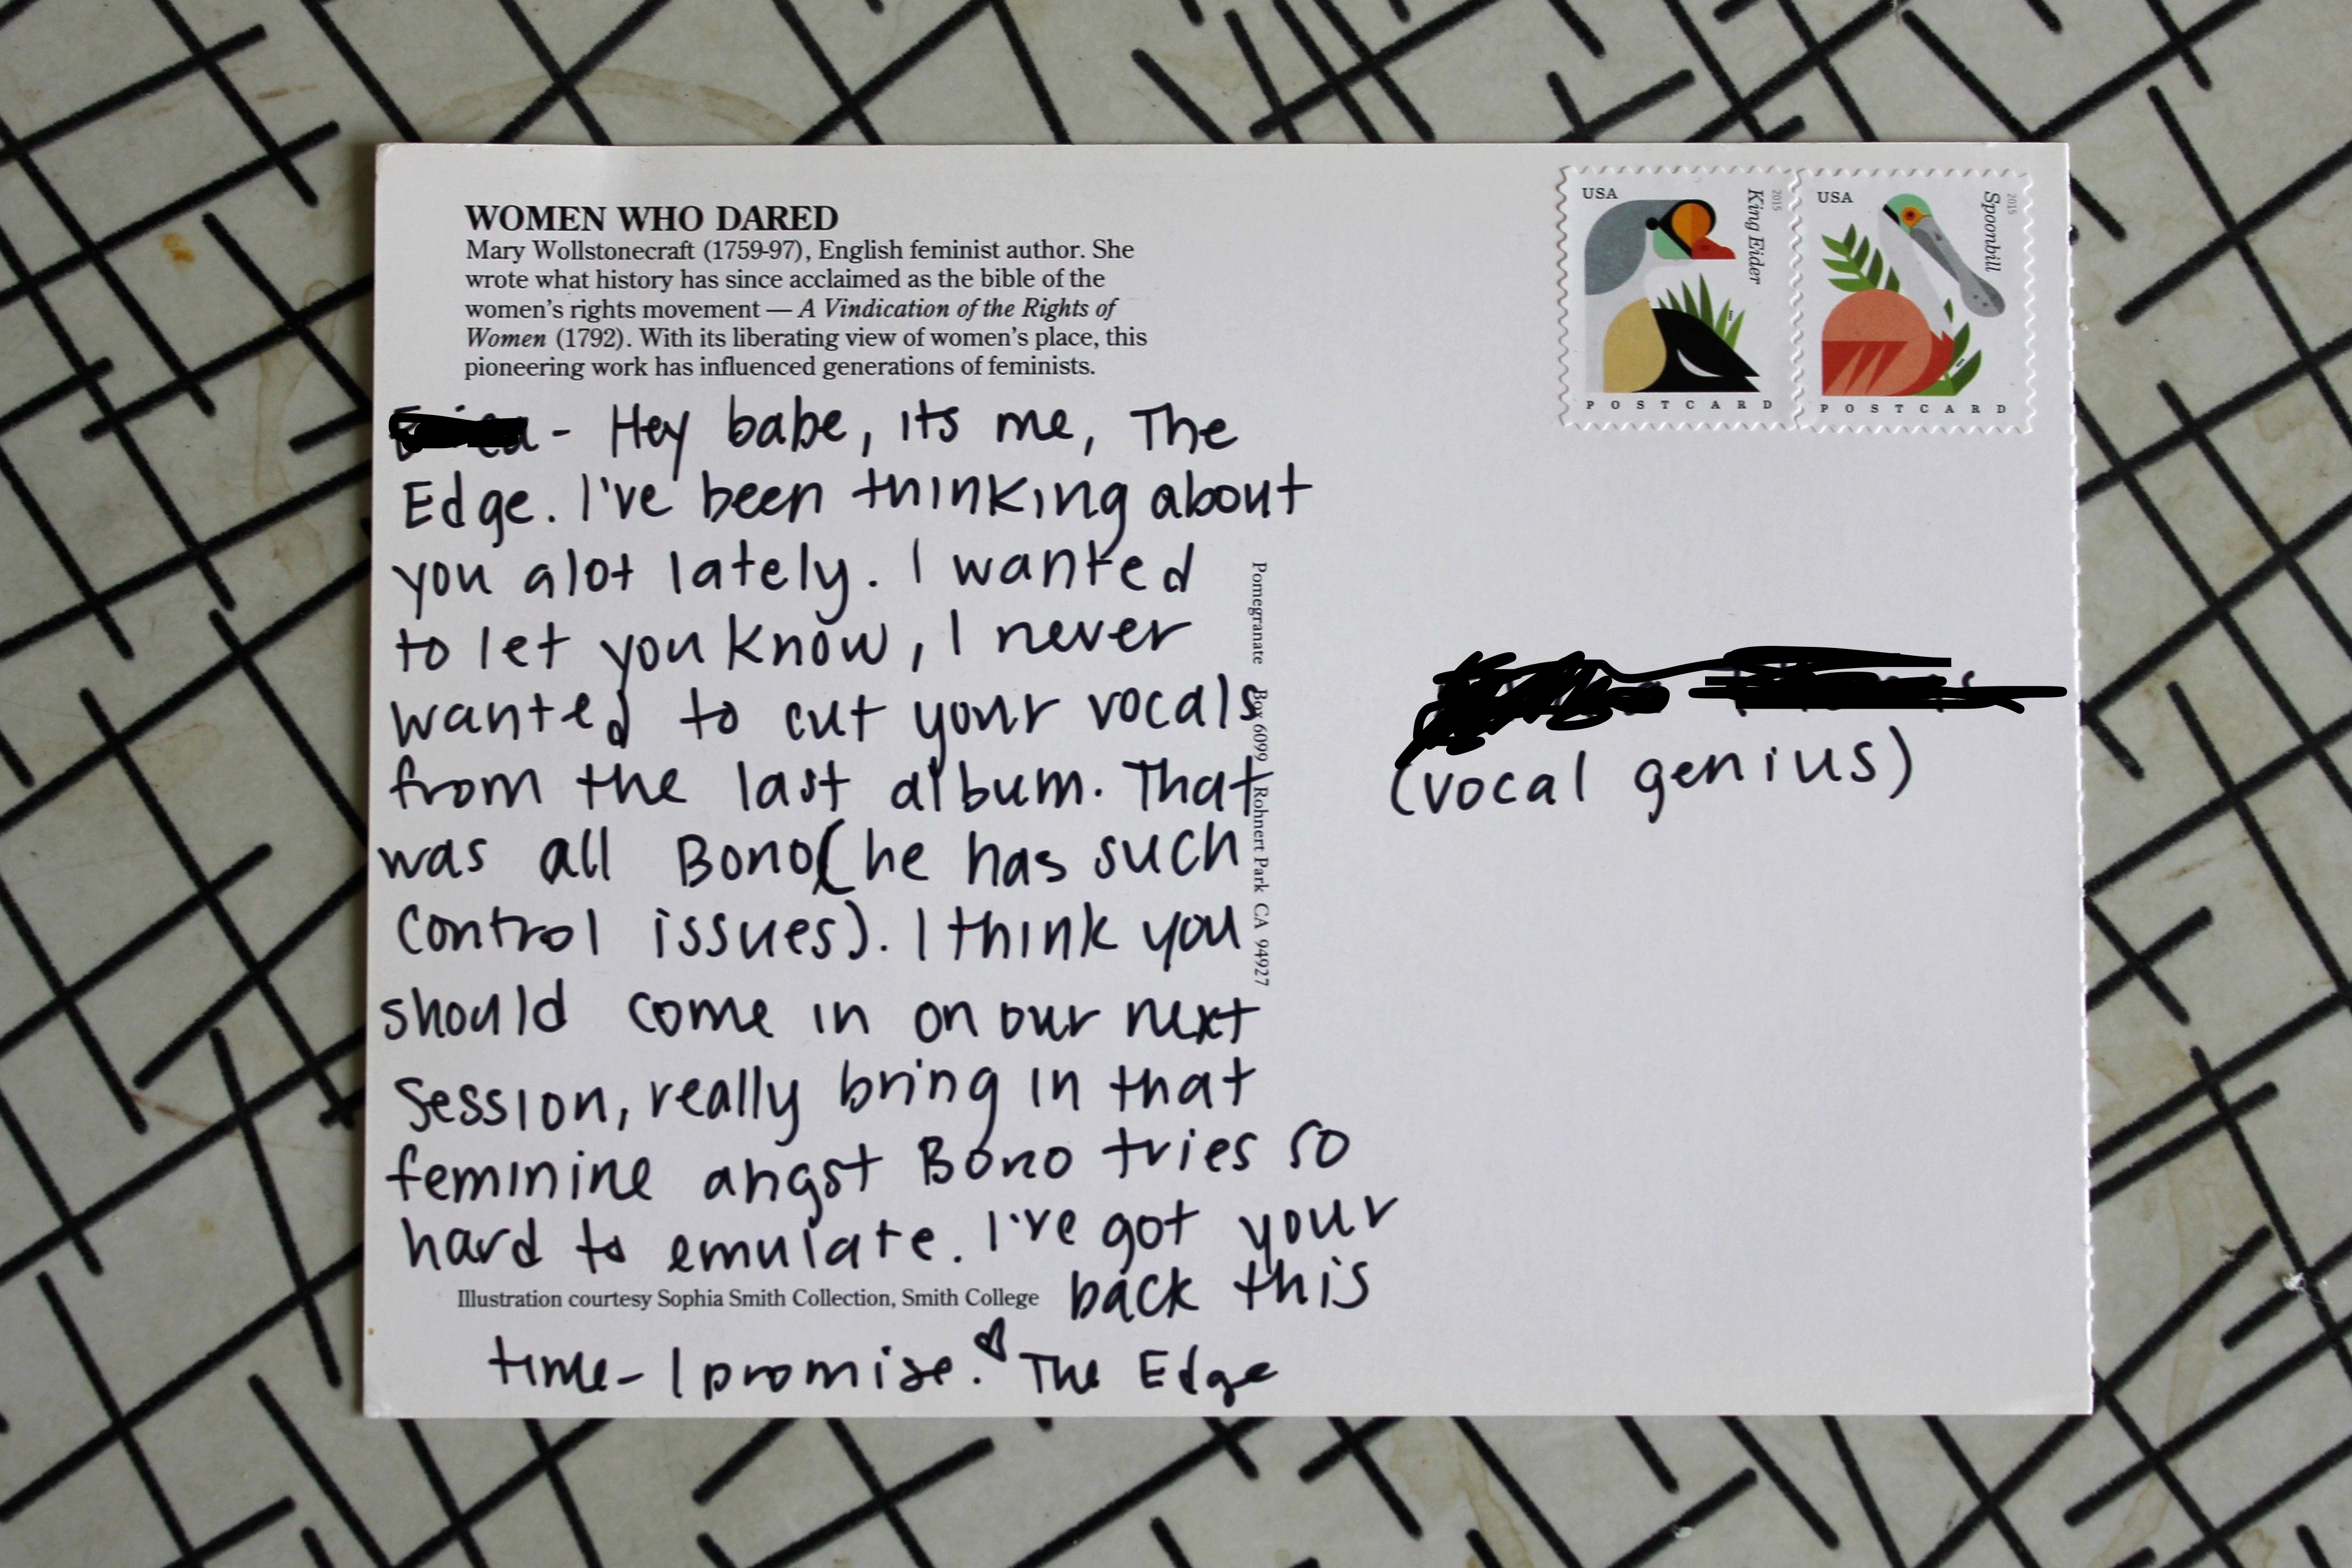 WOMEN WHO DARED
Mary Wollstonecraft (1759-97), English feminist author. She
wrote what history has since acclaimed as the bible of the
women's rights movement — A Vindication of the Rights of
Women (1792). With its liberating view of women's place, this
pioneering work has influenced generations of feminists.
- Hey babe, its me, The
Edge. I've been thinking about
you alot lately. I wanted
to let you know, I never
wanted to cut your vocals
from the last album. That
was all Bono (he has such
control issues). I think you
should come in on our next
session, really bring in that
feminine angst Bono tries so
hard to emulate. I've got your
back this
Illustration courtesy Sophia Smith Collection, Smith College
time - I promise. ♥ The Edge
Pomegranate Box 6099 Rohnert Park CA 94927
USA
King Eider
2015
POSTCARD
USA
Spoonbill
2015
POSTCARD
(vocal genius)